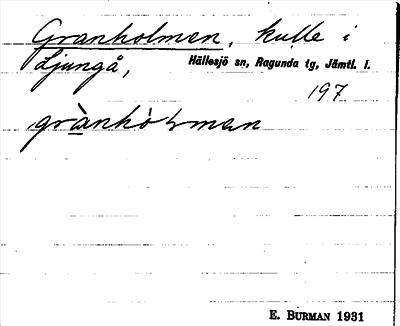 Granholmen, kulle i
Ljungå, Hällesjö sn, Ragunda tg, Jämtl. l.
197
E. BURMAN 1931